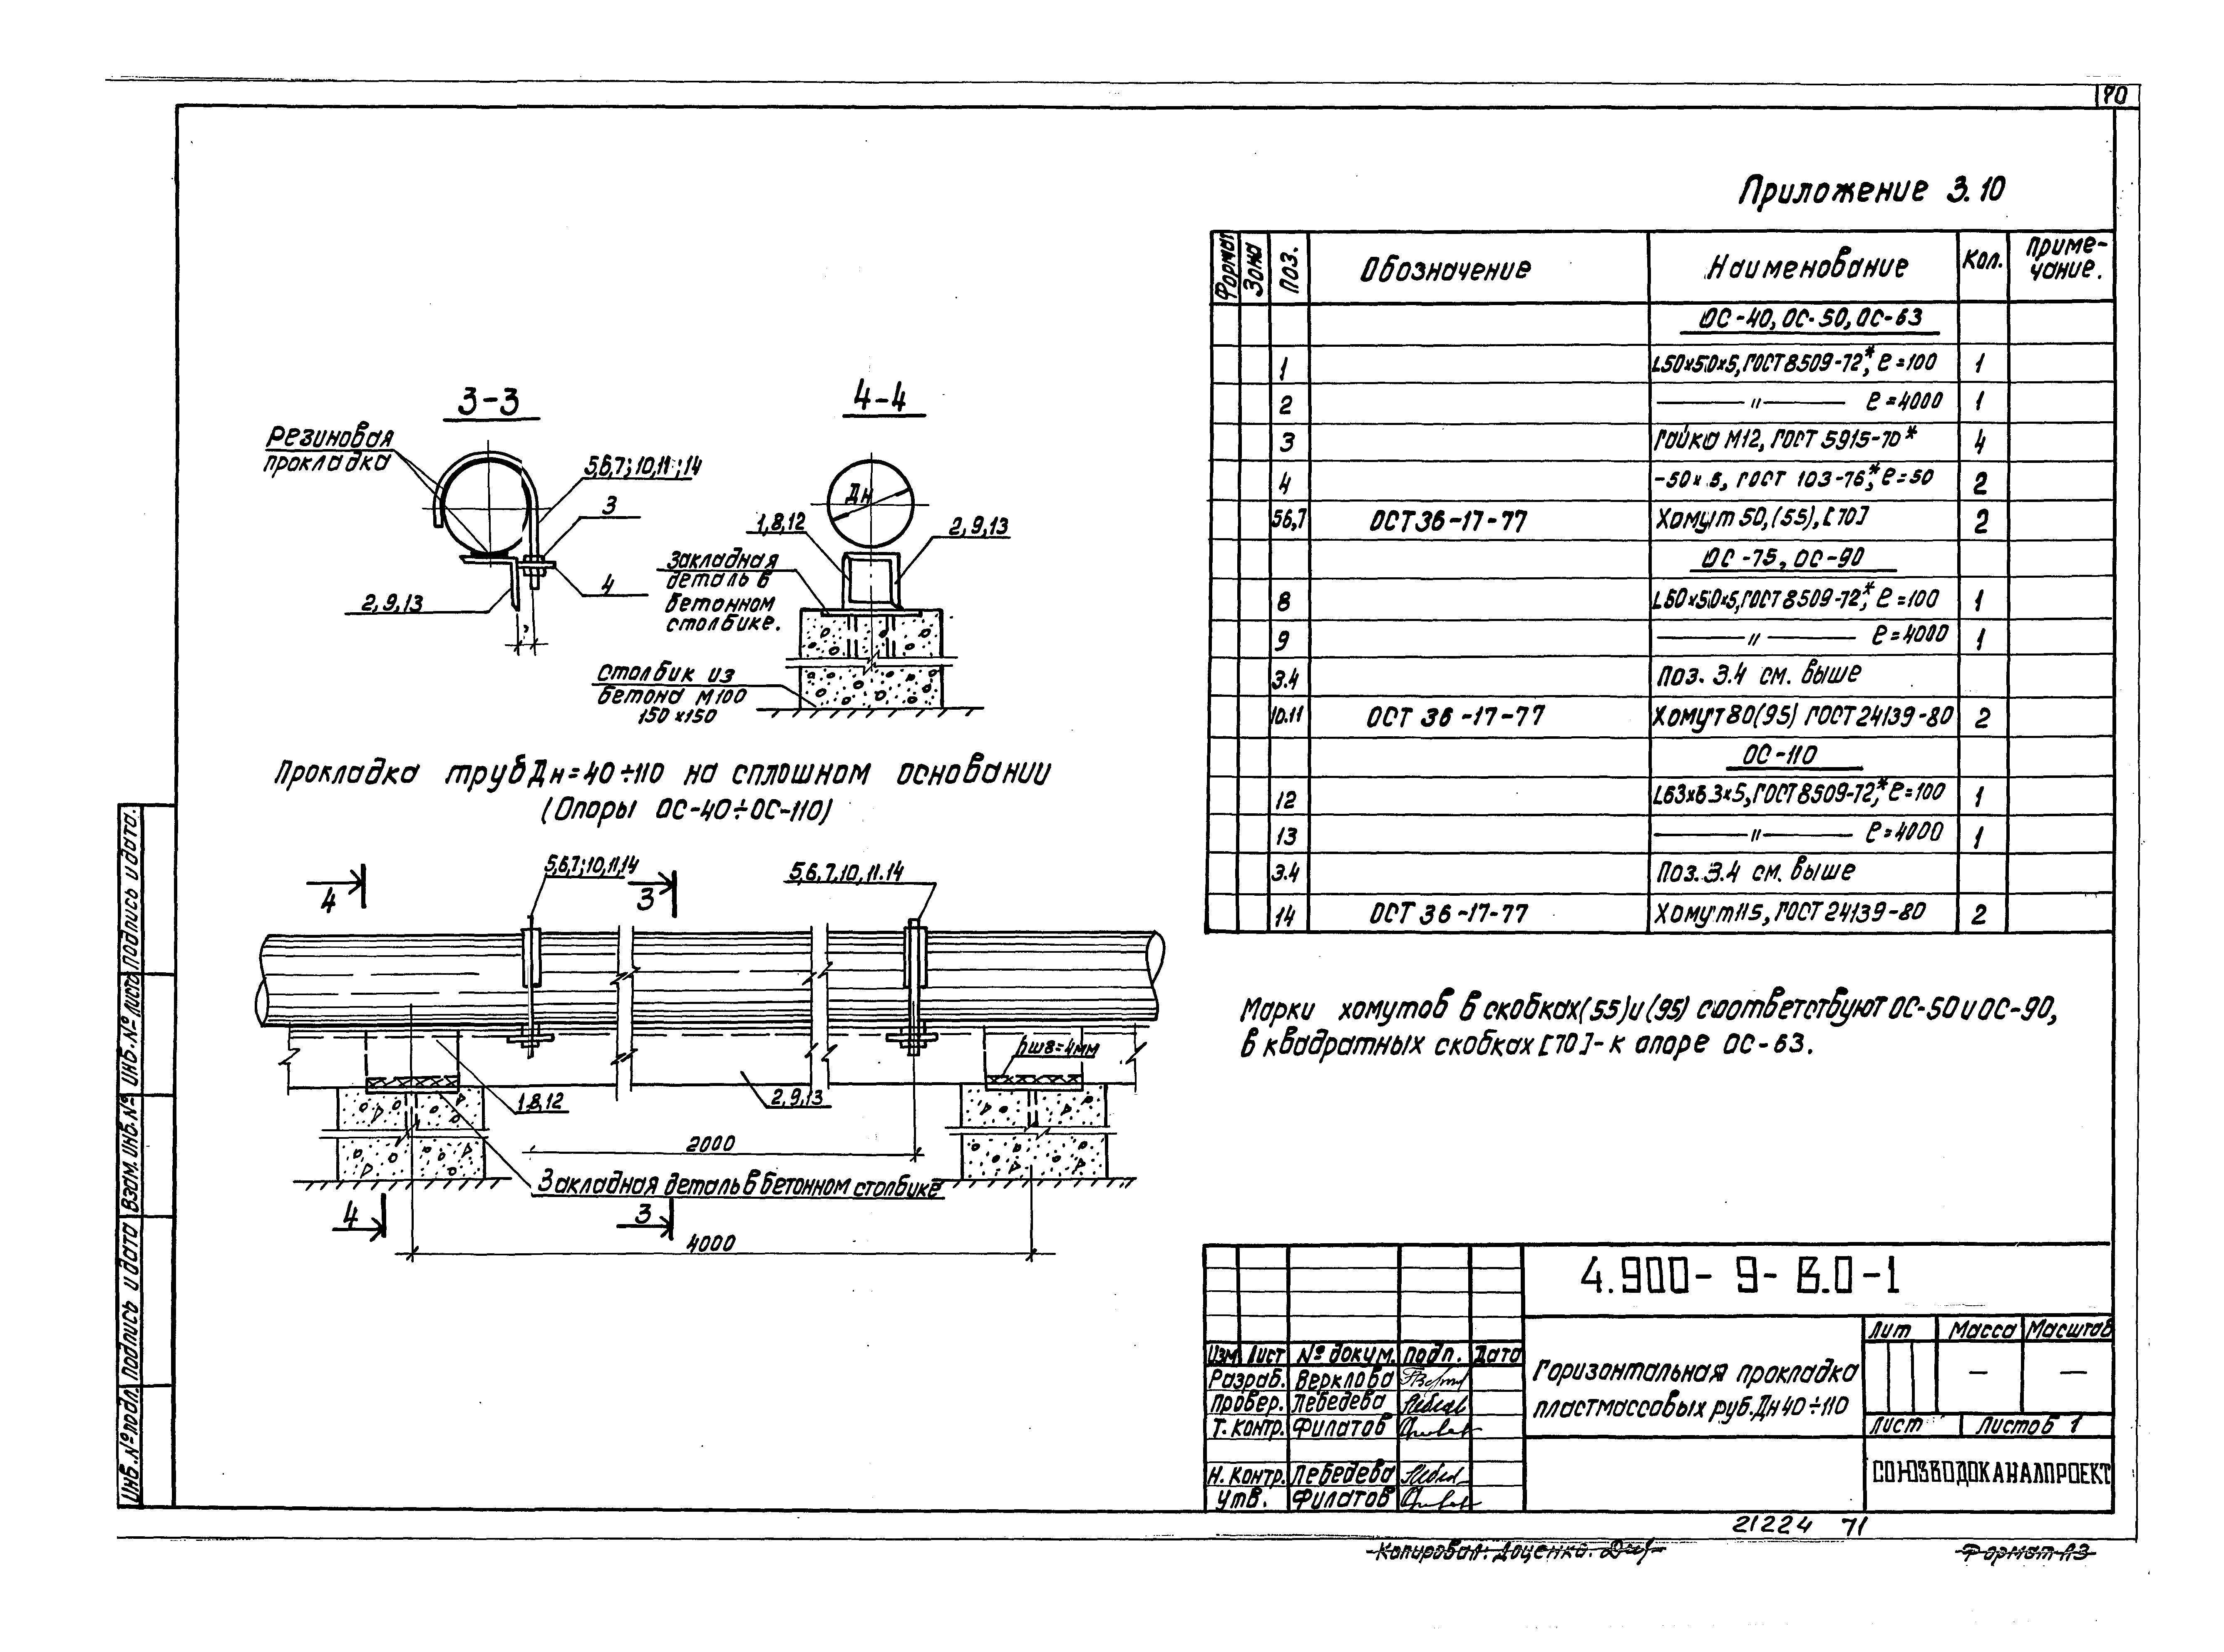 70
Приложение 3.10
Формат Зона Поз. Обозначение Наименование Кол. Приме-
чание.
ОС-40, ОС-50, ОС-63
1 L50х50х5, ГОСТ 8509-72*, ℓ=100 1
2 —〃— ℓ=4000 1
3 Гайка М12, ГОСТ 5915-70* 4
4 -50х5, ГОСТ 103-76*, ℓ=50 2
5,6,7 ОСТ 36-17-77 Хомут 50, (55), [70] 2
ОС-75, ОС-90
8 L50х50х5, ГОСТ 8509-72*, ℓ=100 1
9 —〃— ℓ=4000 1
3.4 Поз. 3.4 см. выше
10.11 ОСТ 36-17-77 Хомут 80(95) ГОСТ 24139-80 2
ОС-110
12 L63х63х5, ГОСТ 8509-72*, ℓ=100 1
13 —〃— ℓ=4000 1
3.4 Поз. 3.4 см. выше
14 ОСТ 36-17-77 Хомут 115, ГОСТ 24139-80 2
Марки хомутов в скобках (55) и (95) соответствуют ОС-50 и ОС-90,
в квадратных скобках [70] - к опоре ОС-63.
3-3
Резиновая
прокладка
5,6,7; 10,11; 14
3
4
2,9,13
4-4
Дн
1,8,12
2,9,13
Закладная
деталь в
бетонном
столбике.
Столбик из
бетона М100
150х150
Прокладка труб Дн=40÷110 на сплошном основании
(Опоры ОС-40÷ОС-110)
4
5,6,7; 10,11,14
3
5,6,7,10,11.14
hшв=4мм
1,8,12
2,9,13
2000
Закладная деталь в бетонном столбике
4
3
4000
4.900-9-В.0-1
Изм Лист № докум. Подп. Дата
Разраб. Верклова
Провер. Лебедева
Т. контр. Филатов
Н. контр. Лебедева
Утв. Филатов
Горизонтальная прокладка
пластмассовых руб. Дн 40÷110
Лит Масса Масштав
— —
Лист Листов 1
СОЮЗВОДОКАНАЛПРОЕКТ
21224 71
Копировал: Доценко.
Формат А3
Инв. № подл. Подпись и дата Взам. инв. № Инв. № листа Подпись и дата.